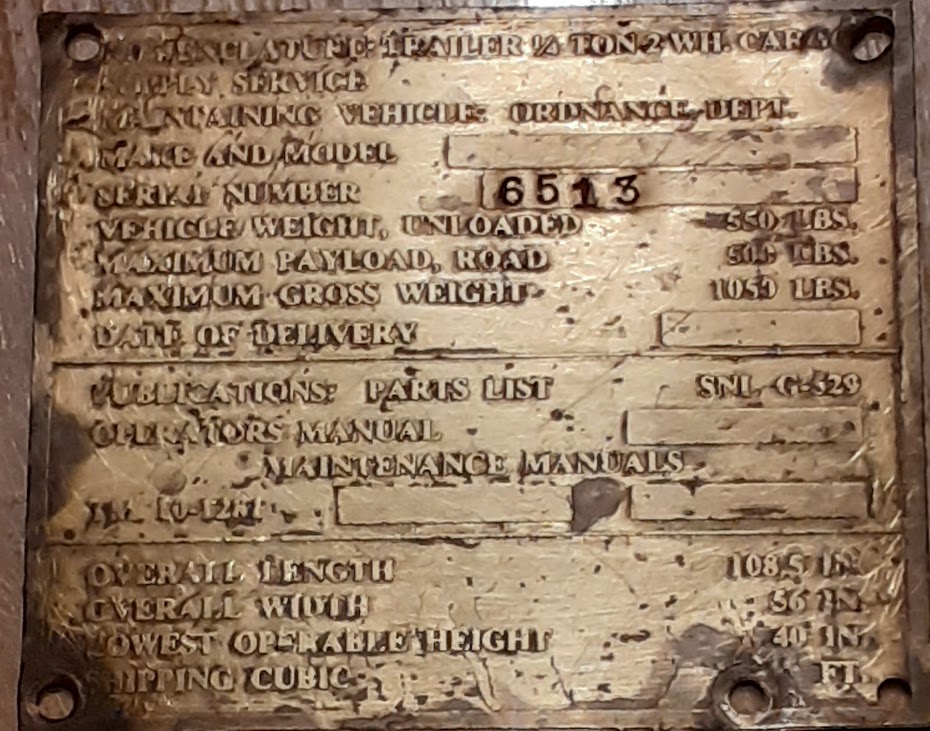 NOMENCLATURE: TRAILER ¼ TON 2 WH. CARGO
SUPPLY SERVICE
MAINTAINING VEHICLE: ORDNANCE DEPT.
MAKE AND MODEL
SERIAL NUMBER 6513
VEHICLE WEIGHT, UNLOADED 550 LBS.
MAXIMUM PAYLOAD, ROAD 500 LBS.
MAXIMUM GROSS WEIGHT 1050 LBS.
DATE OF DELIVERY
PUBLICATIONS: PARTS LIST SNL G-529
OPERATORS MANUAL
MAINTENANCE MANUALS
OVERALL LENGTH 108.5 IN.
OVERALL WIDTH 56 IN.
LOWEST OPERABLE HEIGHT 40 IN.
SHIPPING CUBIC FT.